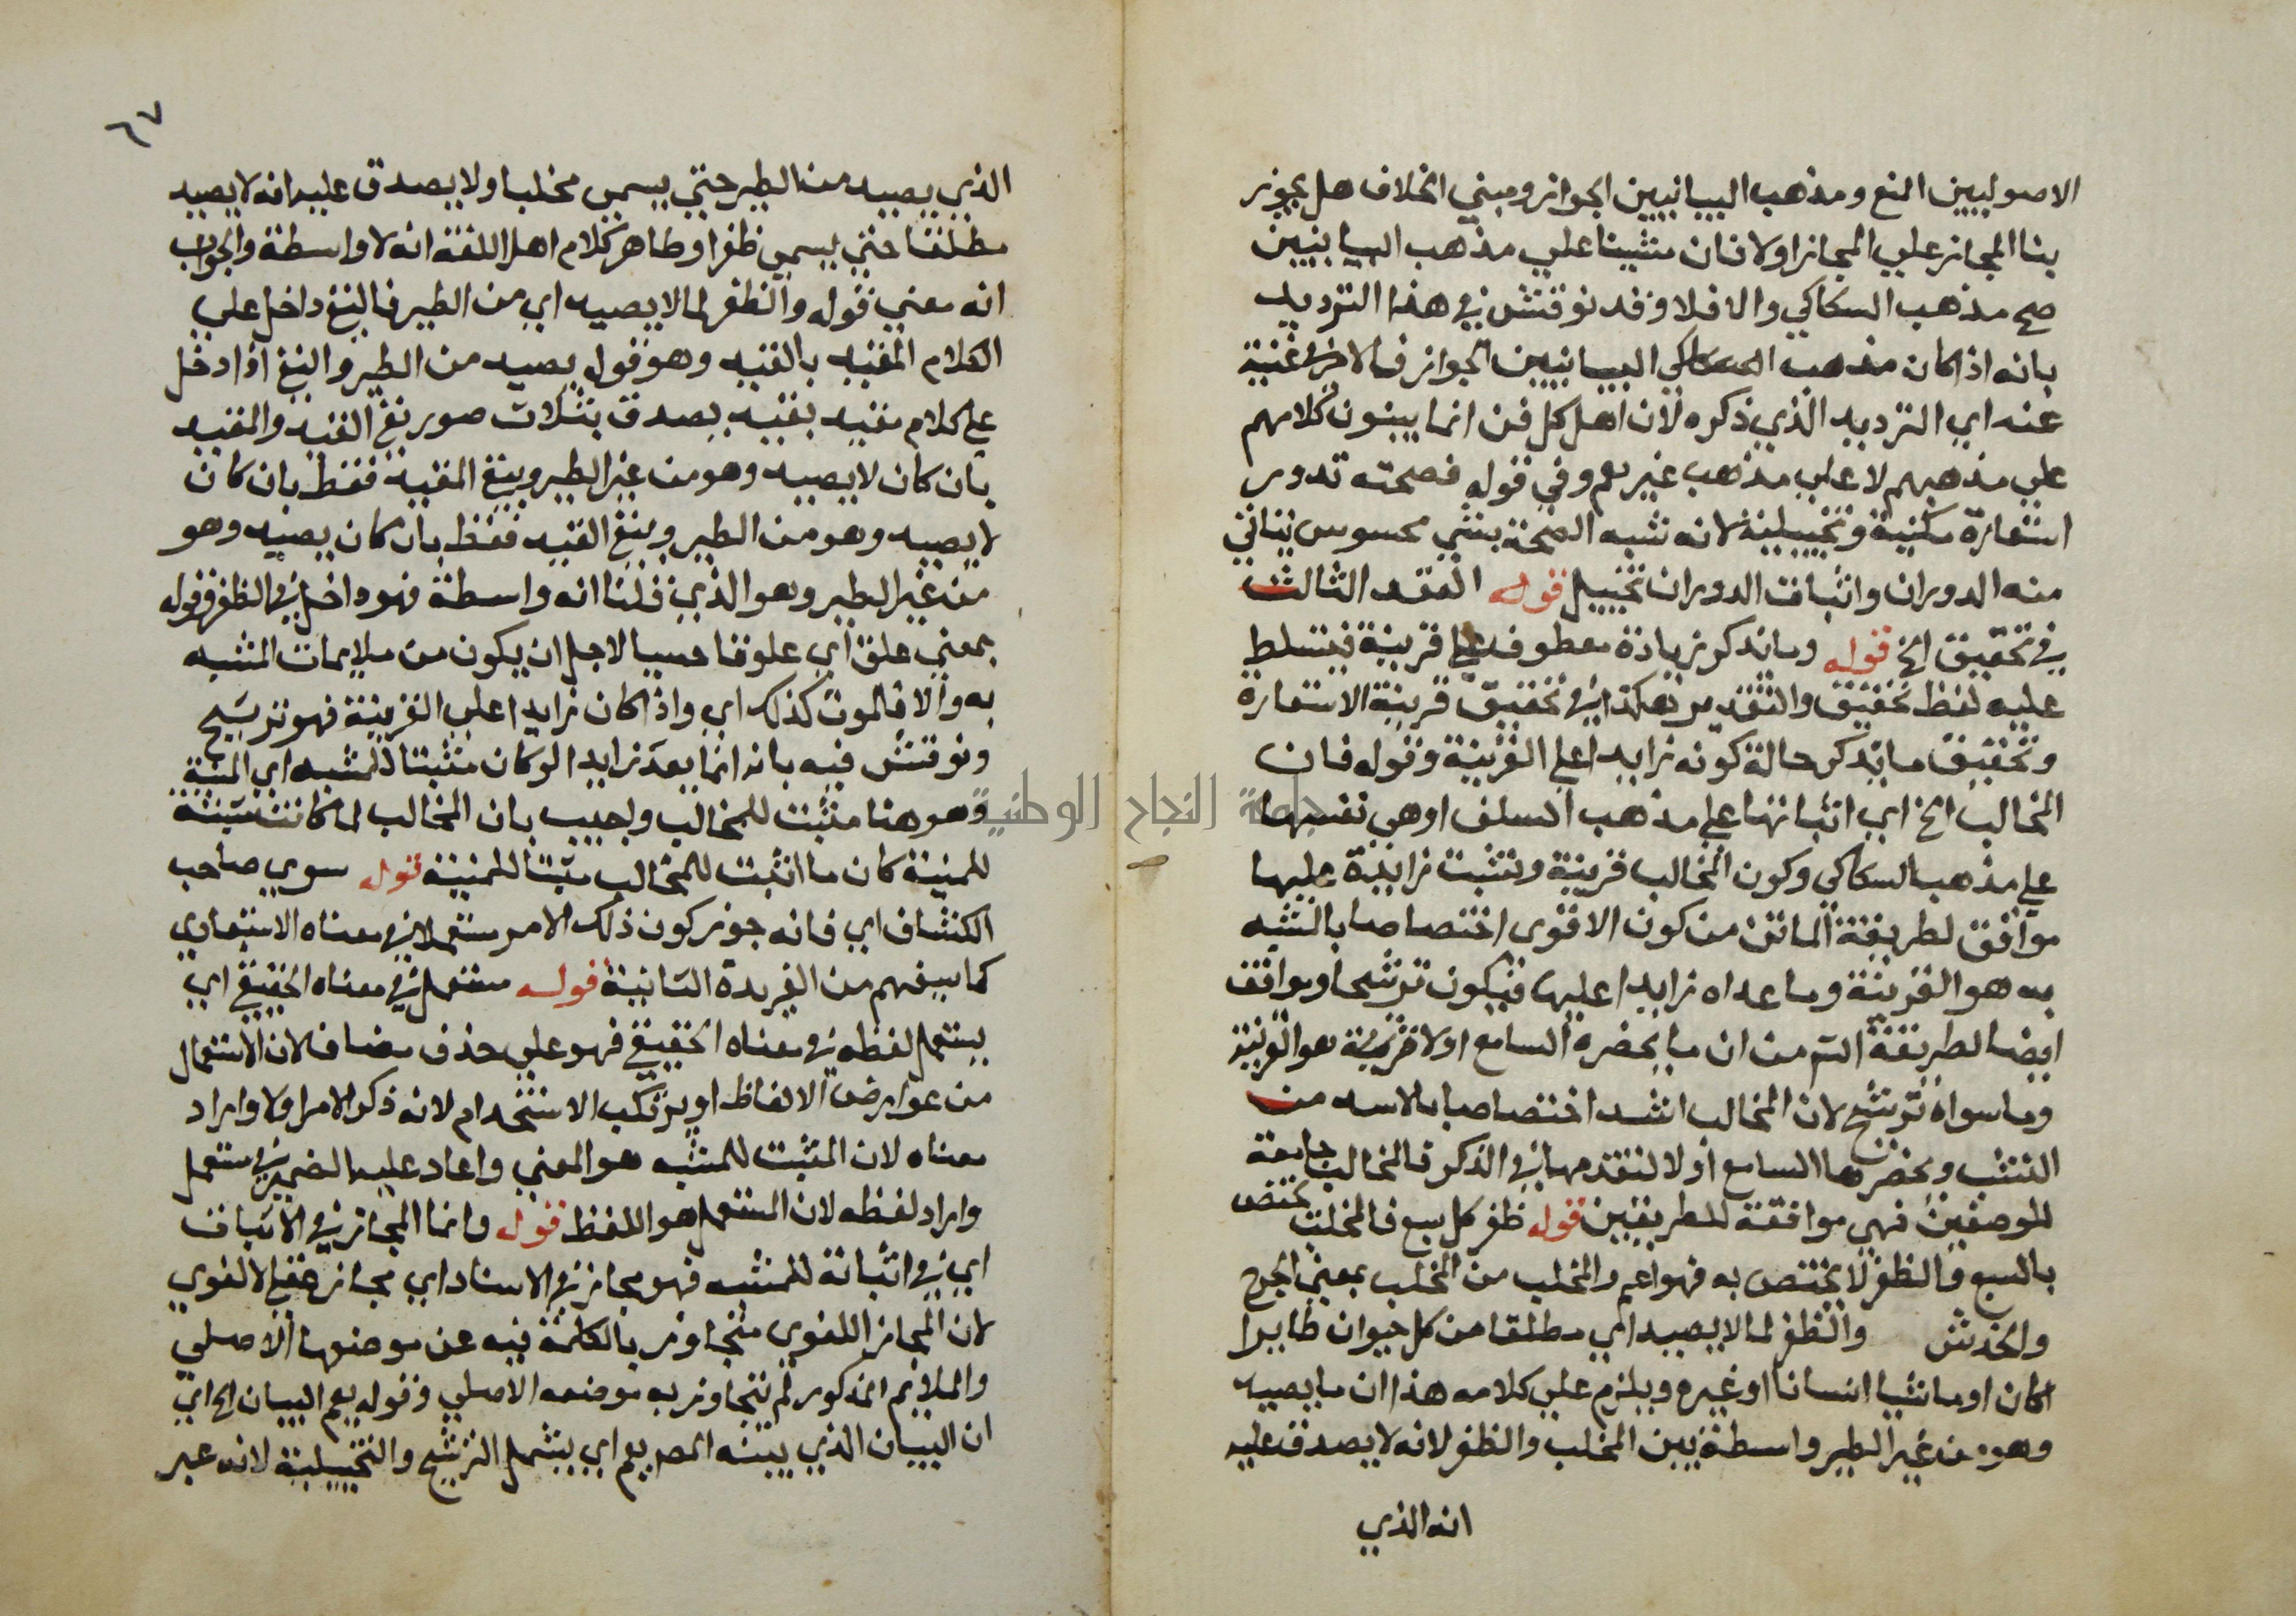 الاصوليين المنع ومذهب البيانيين الجواز ومبني الخلاف هل يجوز
بنا المجاز علي المجاز اولا فان مشينا علي مذهب البيانيين
صح مذهب السكاكي والا فلا وقد نوقش في هذا الترديد
بانه اذا كان مذهب البيانيين الجواز فالامر في غنية
عنه اي الترديد الذي ذكره لان اهل كل فن انما يبنون كلامهم
علي مذهبهم لا علي مذهب غيرهم وفي قوله فصحته تدور
استعارة مكنية وتخييلية لانه شبه الصحة بشي محسوس يتاتي
منه الدوران واثبات الدوران تخييل قوله العقد الثالث
في تحقيق الخ قوله وما يذكر زيادة معطوف علي قرينة فيتسلط
عليه لفظ تحقيق والتقدير هكذا في تحقيق قرينة الاستعارة
وتحقيق ما يذكر حالة كونه زايدا علي القرينة وقوله فان
المخالب الخ اي اثباتها علي مذهب السلف او هي نفسها
علي مذهب السكاكي وكون المخالب قرينة ونشبت زايدة عليها
موافق لطريقة الماتن من كون الاقوى اختصاصا بالشبه
به هو القرينة وما عداه زايدا عليها فيكون ترشيحا وموافق
ايضا لطريقة الش من ان ما يحضره السامع اولا هو القرينة
وما سواه ترشيح لان المخالب اشد اختصاصا بالاسد من
النشب ويحضرها السامع اولا لتقدمها في الذكر فالمخالب جامعة
للوصفين فهي موافقة للطريقين قوله ظفر كل سبع فالمخلب يختص
بالسبع والظفر لا يختص به فهو اعم والمخلب من الخلب بمعني الجرح
والخدش والظفر لما لا يصيد اي مطلقا من كل حيوان طايرا
كان او ماشيا انسانا او غيره ويلزم علي كلامه هذا ان ما يصيد
وهو من غير الطير واسطة بين المخلب والظفر لانه لا يصدق عليه
انه الذي
٦٧
الذي يصيد من الطير حتي يسمي مخلبا ولا يصدق عليه انه لا يصيد
مطلقا حتي يسمي ظفرا وظاهر كلام اهل اللغة انه لا واسطة والجواب
انه معني قوله والظفر لما لا يصيد اي من الطير فالنفي داخل علي
الكلام المقيد بالقيد وهو قوله يصيد من الطير والنفي اذا دخل
علي كلام مقيد بقيد يصدق بثلاث صور نفي القيد والمقيد
بان كان لا يصيد وهو من غير الطير وبنفي المقيد فقط بان كان
لا يصيد وهو من الطير وبنفي القيد فقط بان كان يصيد وهو
من غير الطير وهو الذي قلنا انه واسطة فهو داخل في الظفر وقوله
بمعني علق اي علوقا حسيا لاجل ان يكون من ملايمات المشبه
به والا فالموت كذلك اي واذا كان زايدا علي القرينة فهو ترشيح
ونوقش فيه بانه انما يعد زايدا لو كان مثبتا للمشبه اي المنية
وهو هنا مثبت للمخالب واجيب بان المخالب لما كانت مثبتة
للمنية كان ما اثبت للمخالب مثبتا للمنية قوله سوي صاحب
الكشاف اي فانه جوز كون ذلك الامر مستعملا في معناه الاستعاري
كما سيفهم من الفريدة الثانية قوله مستعمل في معناه الحقيقي اي
يستعمل لفظه في معناه الحقيقي فهو علي حذف مضاف لان الاستعمال
من عوارض الالفاظ او يرتكب الاستخدام لانه ذكر الامر اولا واراد
معناه لان المثبت للمشبه هو المعني واعاد عليه الضمير في مستعمل
واراد لفظه لان المستعمل هو اللفظ قوله وانما المجاز في الاثبات
اي في اثباته للمشبه فهو مجاز في الاسناد اي مجاز عقلي لا لغوي
لان المجاز اللغوي متجاوز بالكلمة فيه عن موضوعها الاصلي
والملايم المذكور لم يتجاوز به موضعه الاصلي وقوله يعم البيان الخ اي
ان البيان الذي بينه المص يعم اي يشمل الترشيح والتخييلية لانه عبر